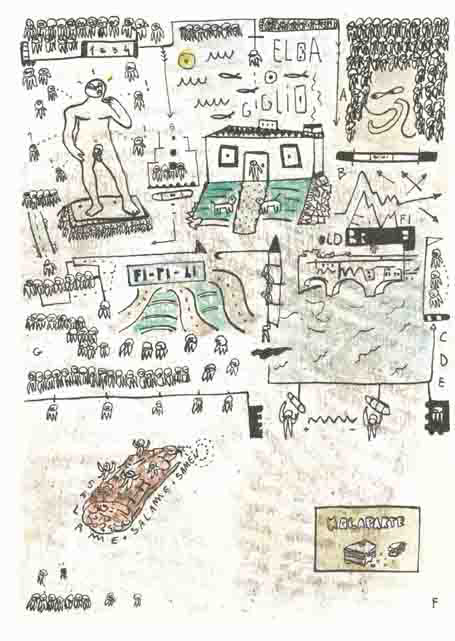 1 2 3 4
ELBA
GIGLIO
A
B
FI
OLD
FI-PI-LI
C
D
E
G
SALAME • SALAME • SALAME
MALAPARTE
F